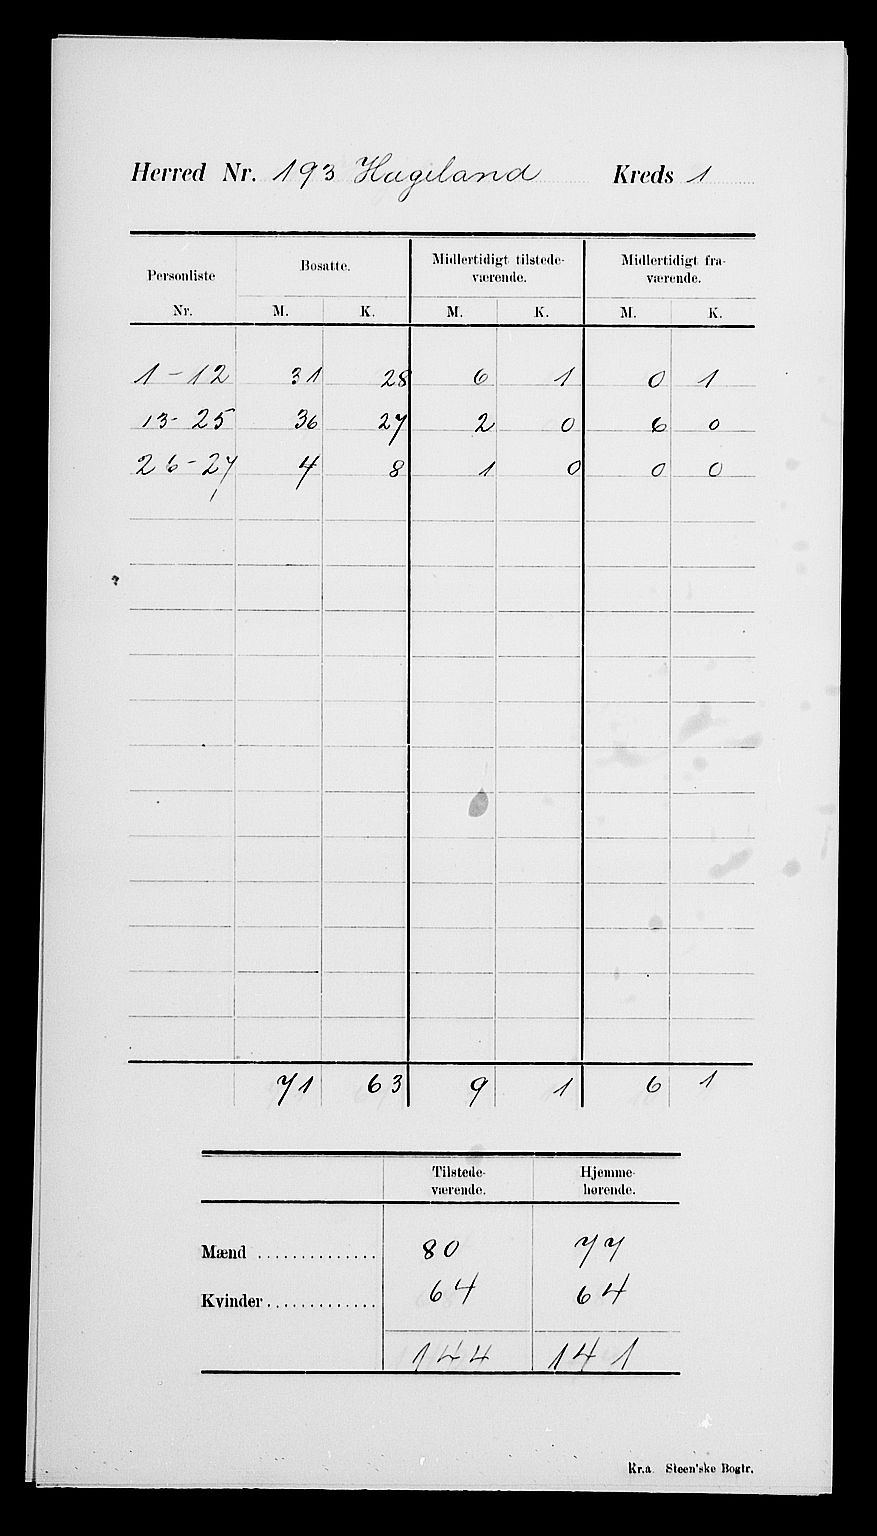 Herred Nr. 193 Hægeland Kreds 1
Personliste Nr. Bosatte. Midlertidigt tilstede- værende. Midlertidigt fra- værende.
M. K. M. K. M. K.
1-12 31 28 6 1 0 1
13-25 36 27 2 0 6 0
26-27 4 8 1 0 0 0
71 63 9 1 6 1
Tilstede- værende. Hjemme- hørende.
Mænd .............. 80 77
Kvinder............. 64 64
144 141
Kr.a Steen'ske Bogtr.